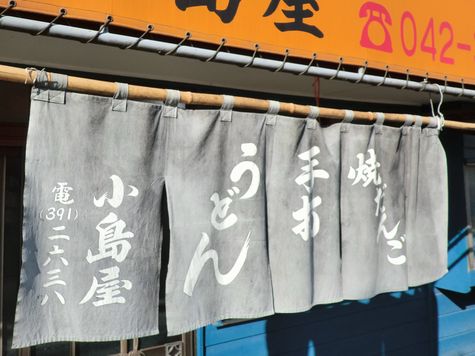 島屋
☎042-
焼だんご
手打
うどん
小島屋
電(391)二六三八